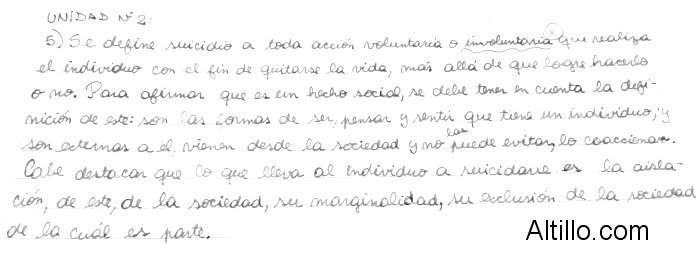 UNIDAD Nº 2:
5) Se define suicidio a toda acción voluntaria o involuntaria que realiza
el individuo con el fin de quitarse la vida, más allá de que logre hacerlo
o no. Para afirmar que es un hecho social, se debe tener en cuenta la defi-
nición de este: son las formas de ser, pensar y sentir que tiene un individuo, y
son externas a él, vienen desde la sociedad y no las puede evitar, lo coaccionan.
Cabe destacar que lo que lleva al individuo a suicidarse es la aisla-
ción, de este, de la sociedad, su marginalidad, su exclusión de la sociedad
de la cuál es parte.
Altillo.com